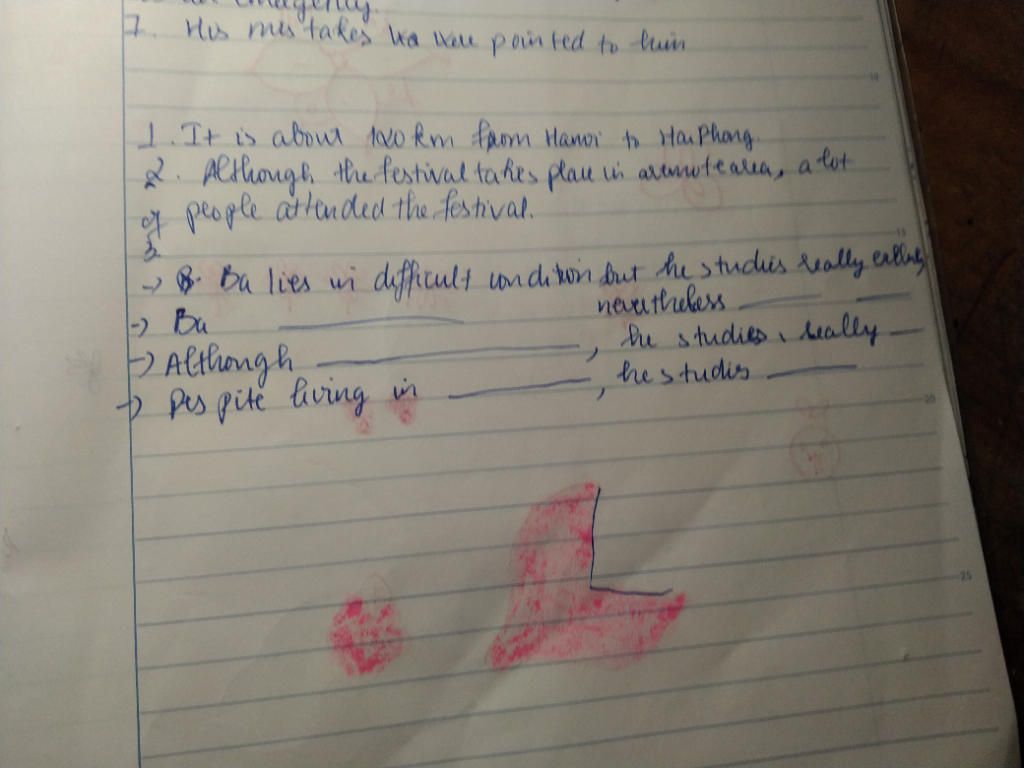 emergency.
7. His mistakes were pointed to him
1. It is about 120 km from Hanoi to HaiPhong.
2. Although the festival takes place in a remote area, a lot
of people attended the festival.
3
-> Ba lies in difficult condition but he studies really
nevertheless
-> Ba
-> Although , he studies really
-> Despite living in , he studis
10
15
20
25